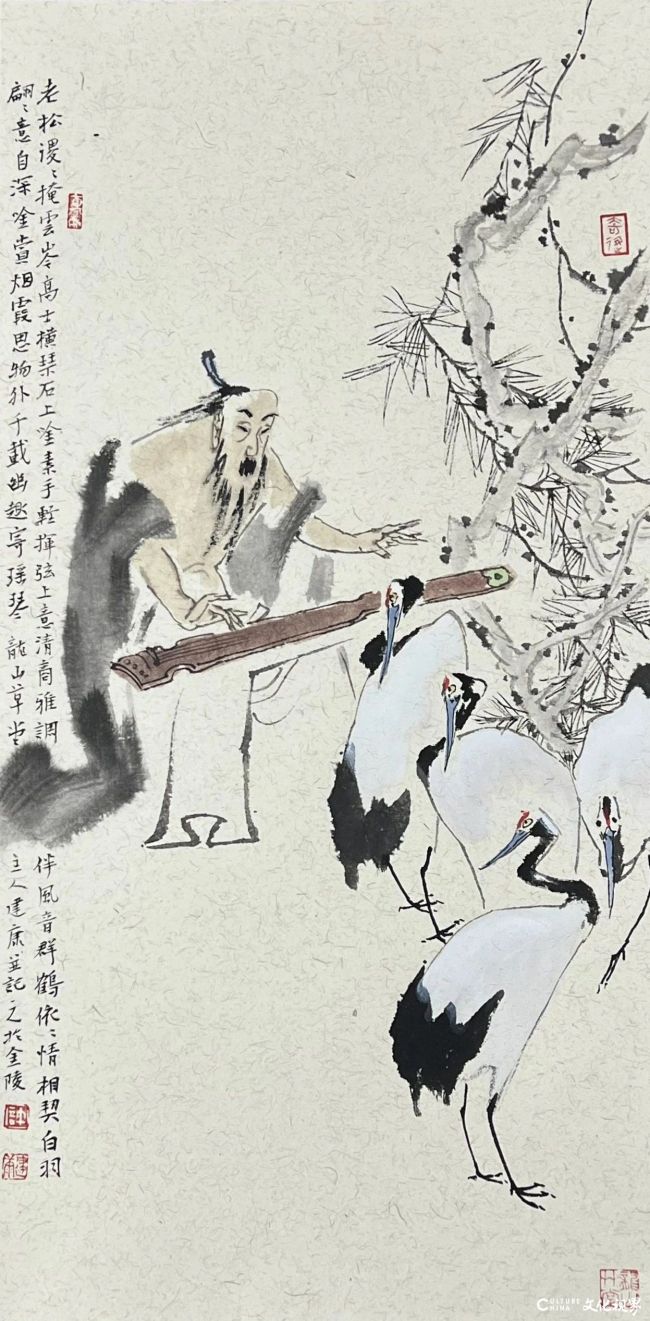 老松谡〻掩雲岑高士横琴石上唫素手輕揮弦上意清商雅調
伴風音群鶴依〻情相契白羽
翩〻意自深唫賞烟霞思物外千載幽趣寄瑶琴龍山草堂
主人建康並記之於金陵
CULTURE
CHINA
文化视界